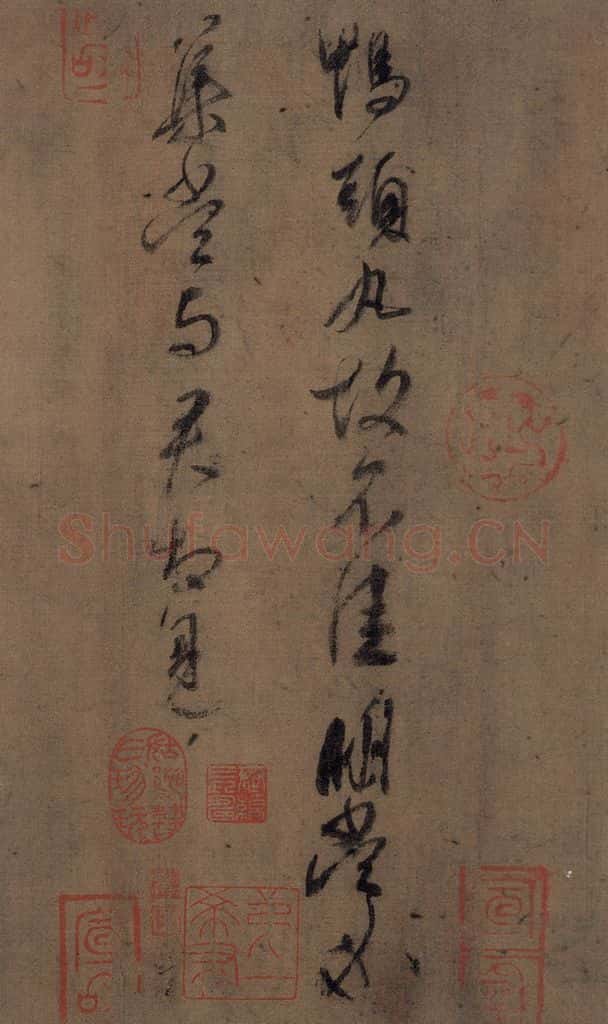 鴨頭丸故不佳明當必
集當与君相見
Shufawang.CN